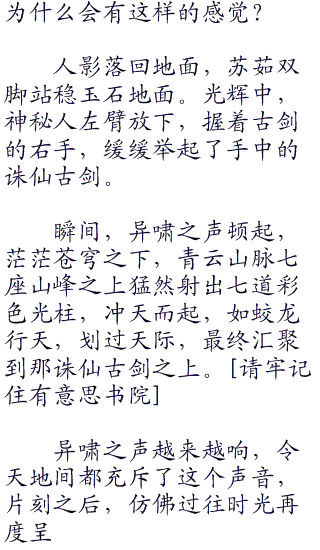 为什么会有这样的感觉？
人影落回地面，苏茹双
脚站稳玉石地面。光辉中，
神秘人左臂放下，握着古剑
的右手，缓缓举起了手中的
诛仙古剑。
瞬间，异啸之声顿起，
茫茫苍穹之下，青云山脉七
座山峰之上猛然射出七道彩
色光柱，冲天而起，如蛟龙
行天，划过天际，最终汇聚
到那诛仙古剑之上。[请牢记
住有意思书院]
异啸之声越来越响，令
天地间都充斥了这个声音，
片刻之后，仿佛过往时光再
度呈